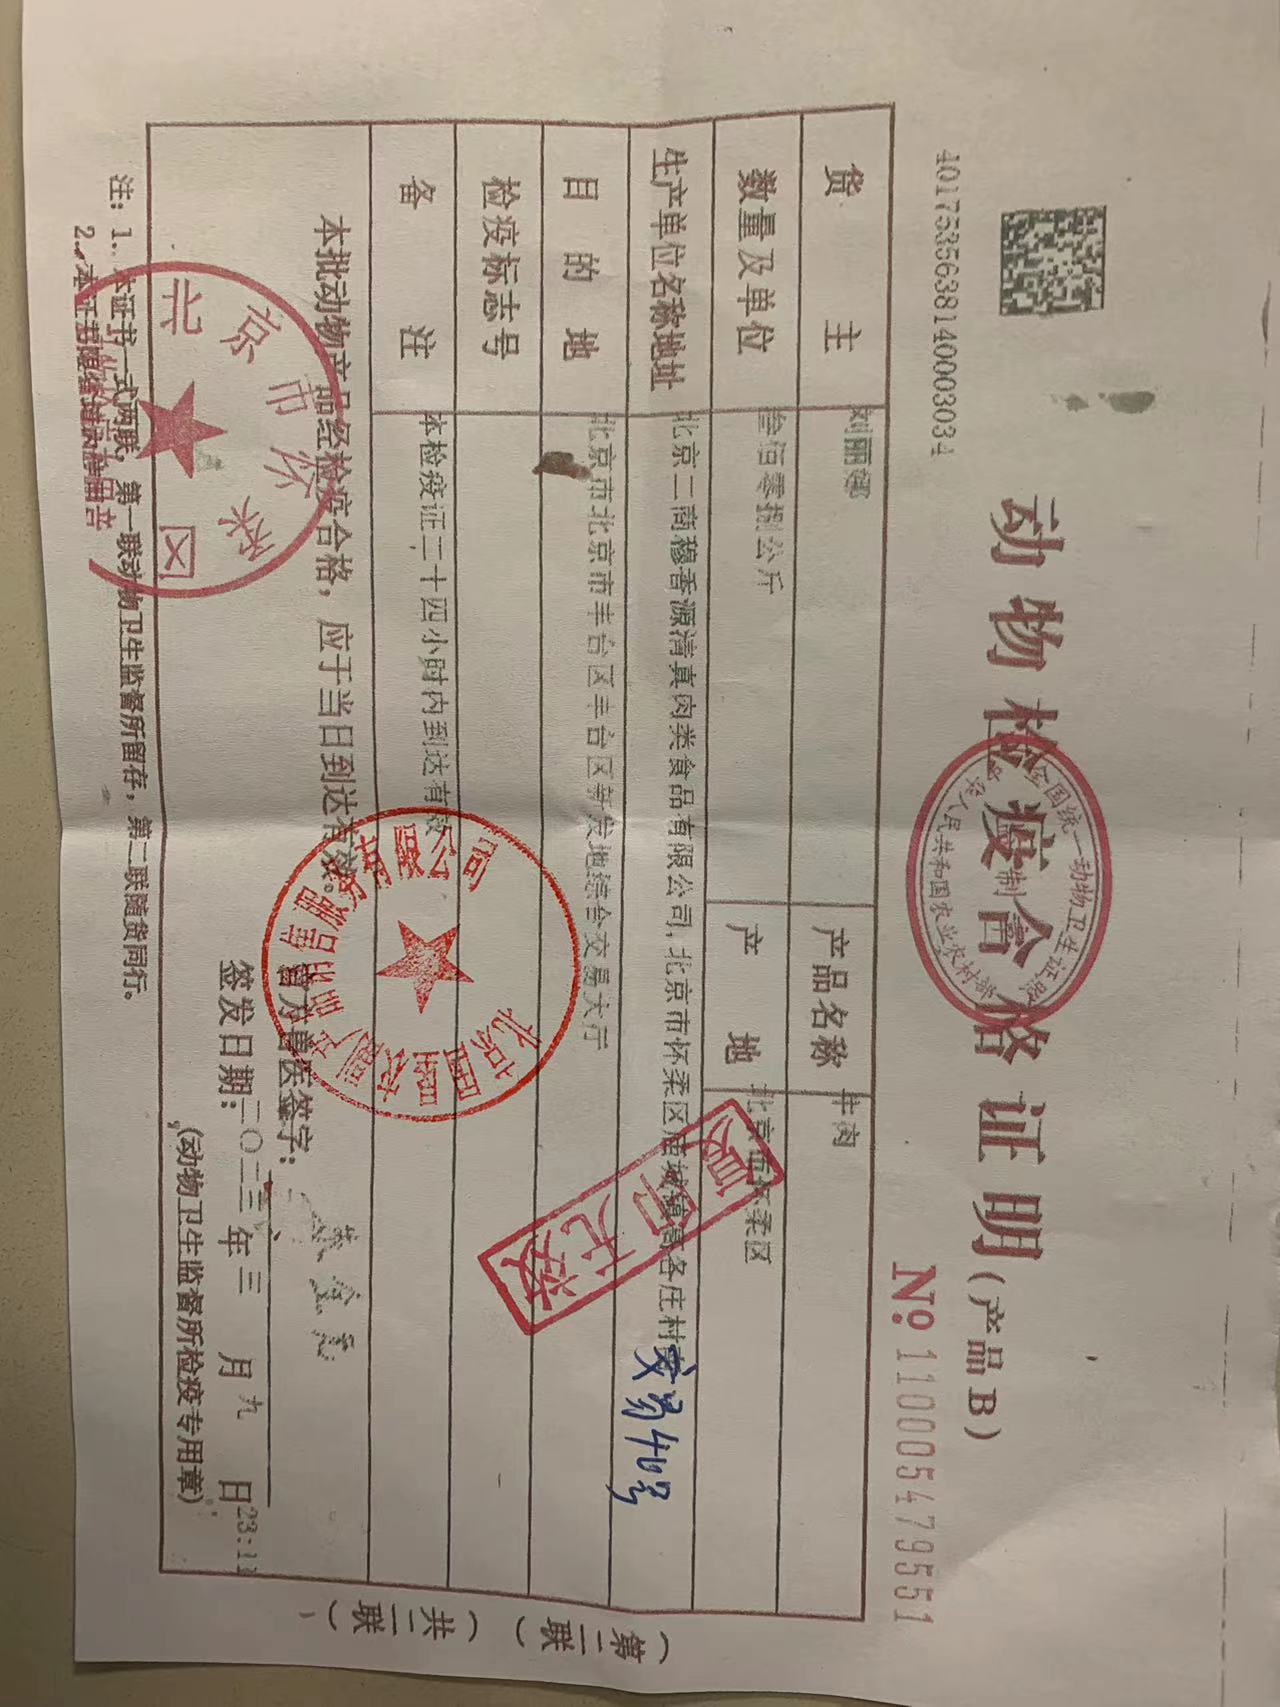 4017535638140003034
动物检疫合格证明(产品B)
全国统一动物卫生证照
中华人民共和国农业农村部
制
No 110005479551
货主
刘丽娜
产品名称
羊肉
数量及单位
叁佰零捌公斤
产地
北京市怀柔区
生产单位名称地址
北京二商穆香源清真肉类食品有限公司,北京市怀柔区庙城镇高各庄村
目的地
北京市北京市丰台区丰台区新发地综合交易大厅
交易48号
检疫标志号
复印无效
备注
本检疫证二十四小时内到达有效
本批动物产品经检疫合格,应于当日到达有效。
官方兽医签字:
签发日期:二〇二三年三月九日23:11
(动物卫生监督所检疫专用章)
北京市怀柔区
注:1.本证书一式两联,第一联动物卫生监督所留存,第二联随货同行。
2.本证书
(第二联)
(共二联)